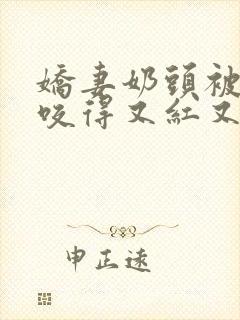 嬌妻奶頭被
咬得又紅又
申正遠